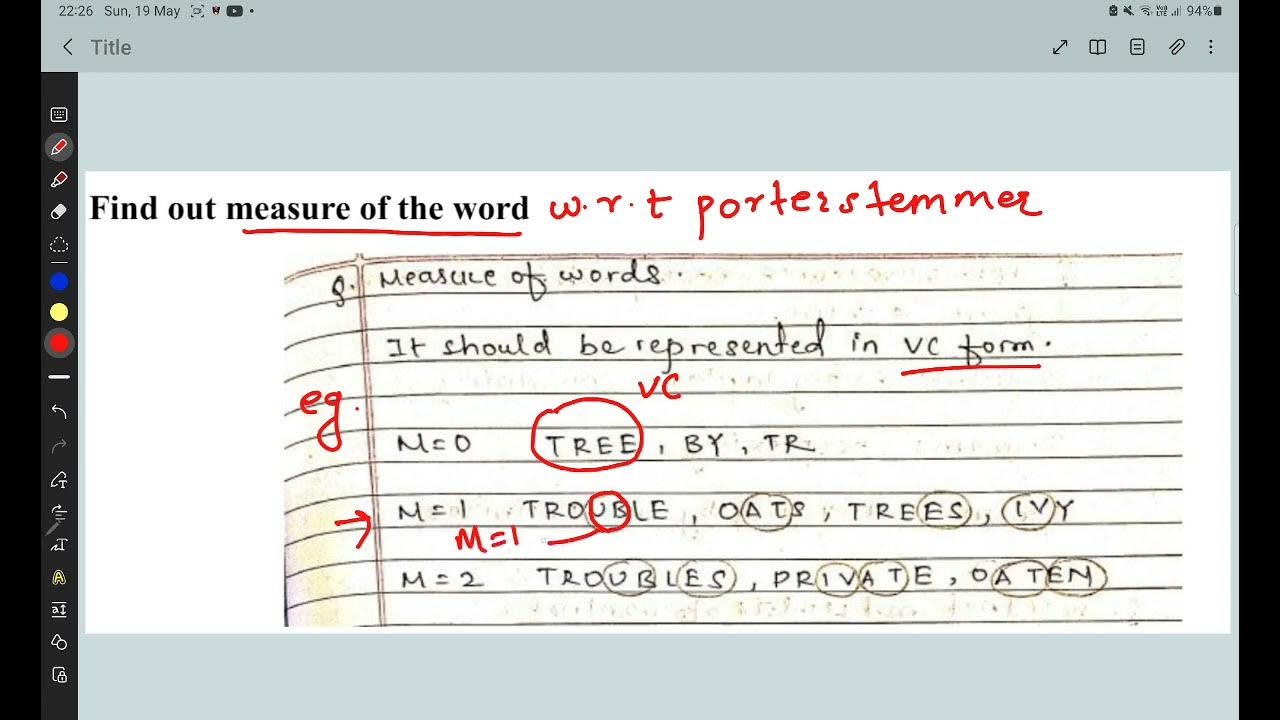 22:26 Sun, 19 May
94%
Title
Find out measure of the word w.r.t porterstemmer
Q. Measure of words.
It should be represented in VC form.
VC
eg.
M=0 TREE, BY, TR
M=1 TROUBLE, OATS, TREES, IVY
M=1
M=2 TROUBLES, PRIVATE, OATEN